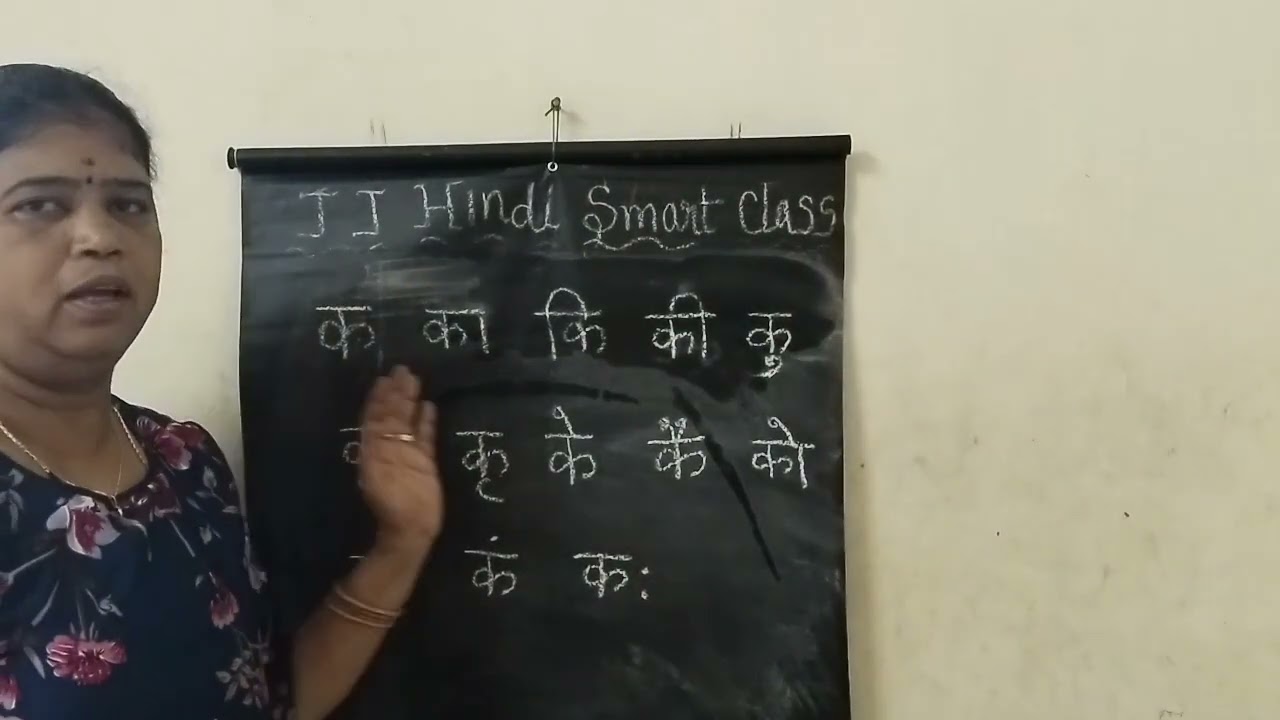 JJ Hindi Smart Class
क का कि की कु
कृ के कैं को
कं कः